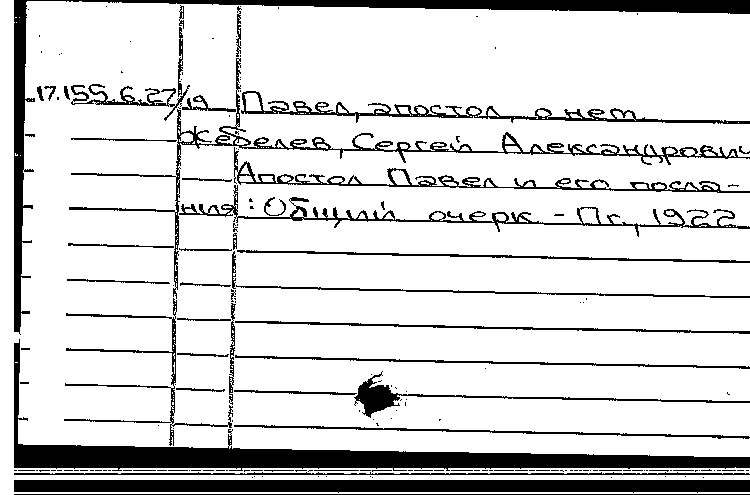 17.155.6.27/19 Павел, апостол, о нем.
Жебелев, Сергей Александрович
Апостол Павел и его посла-
ния : Общий очерк - Пг., 1922